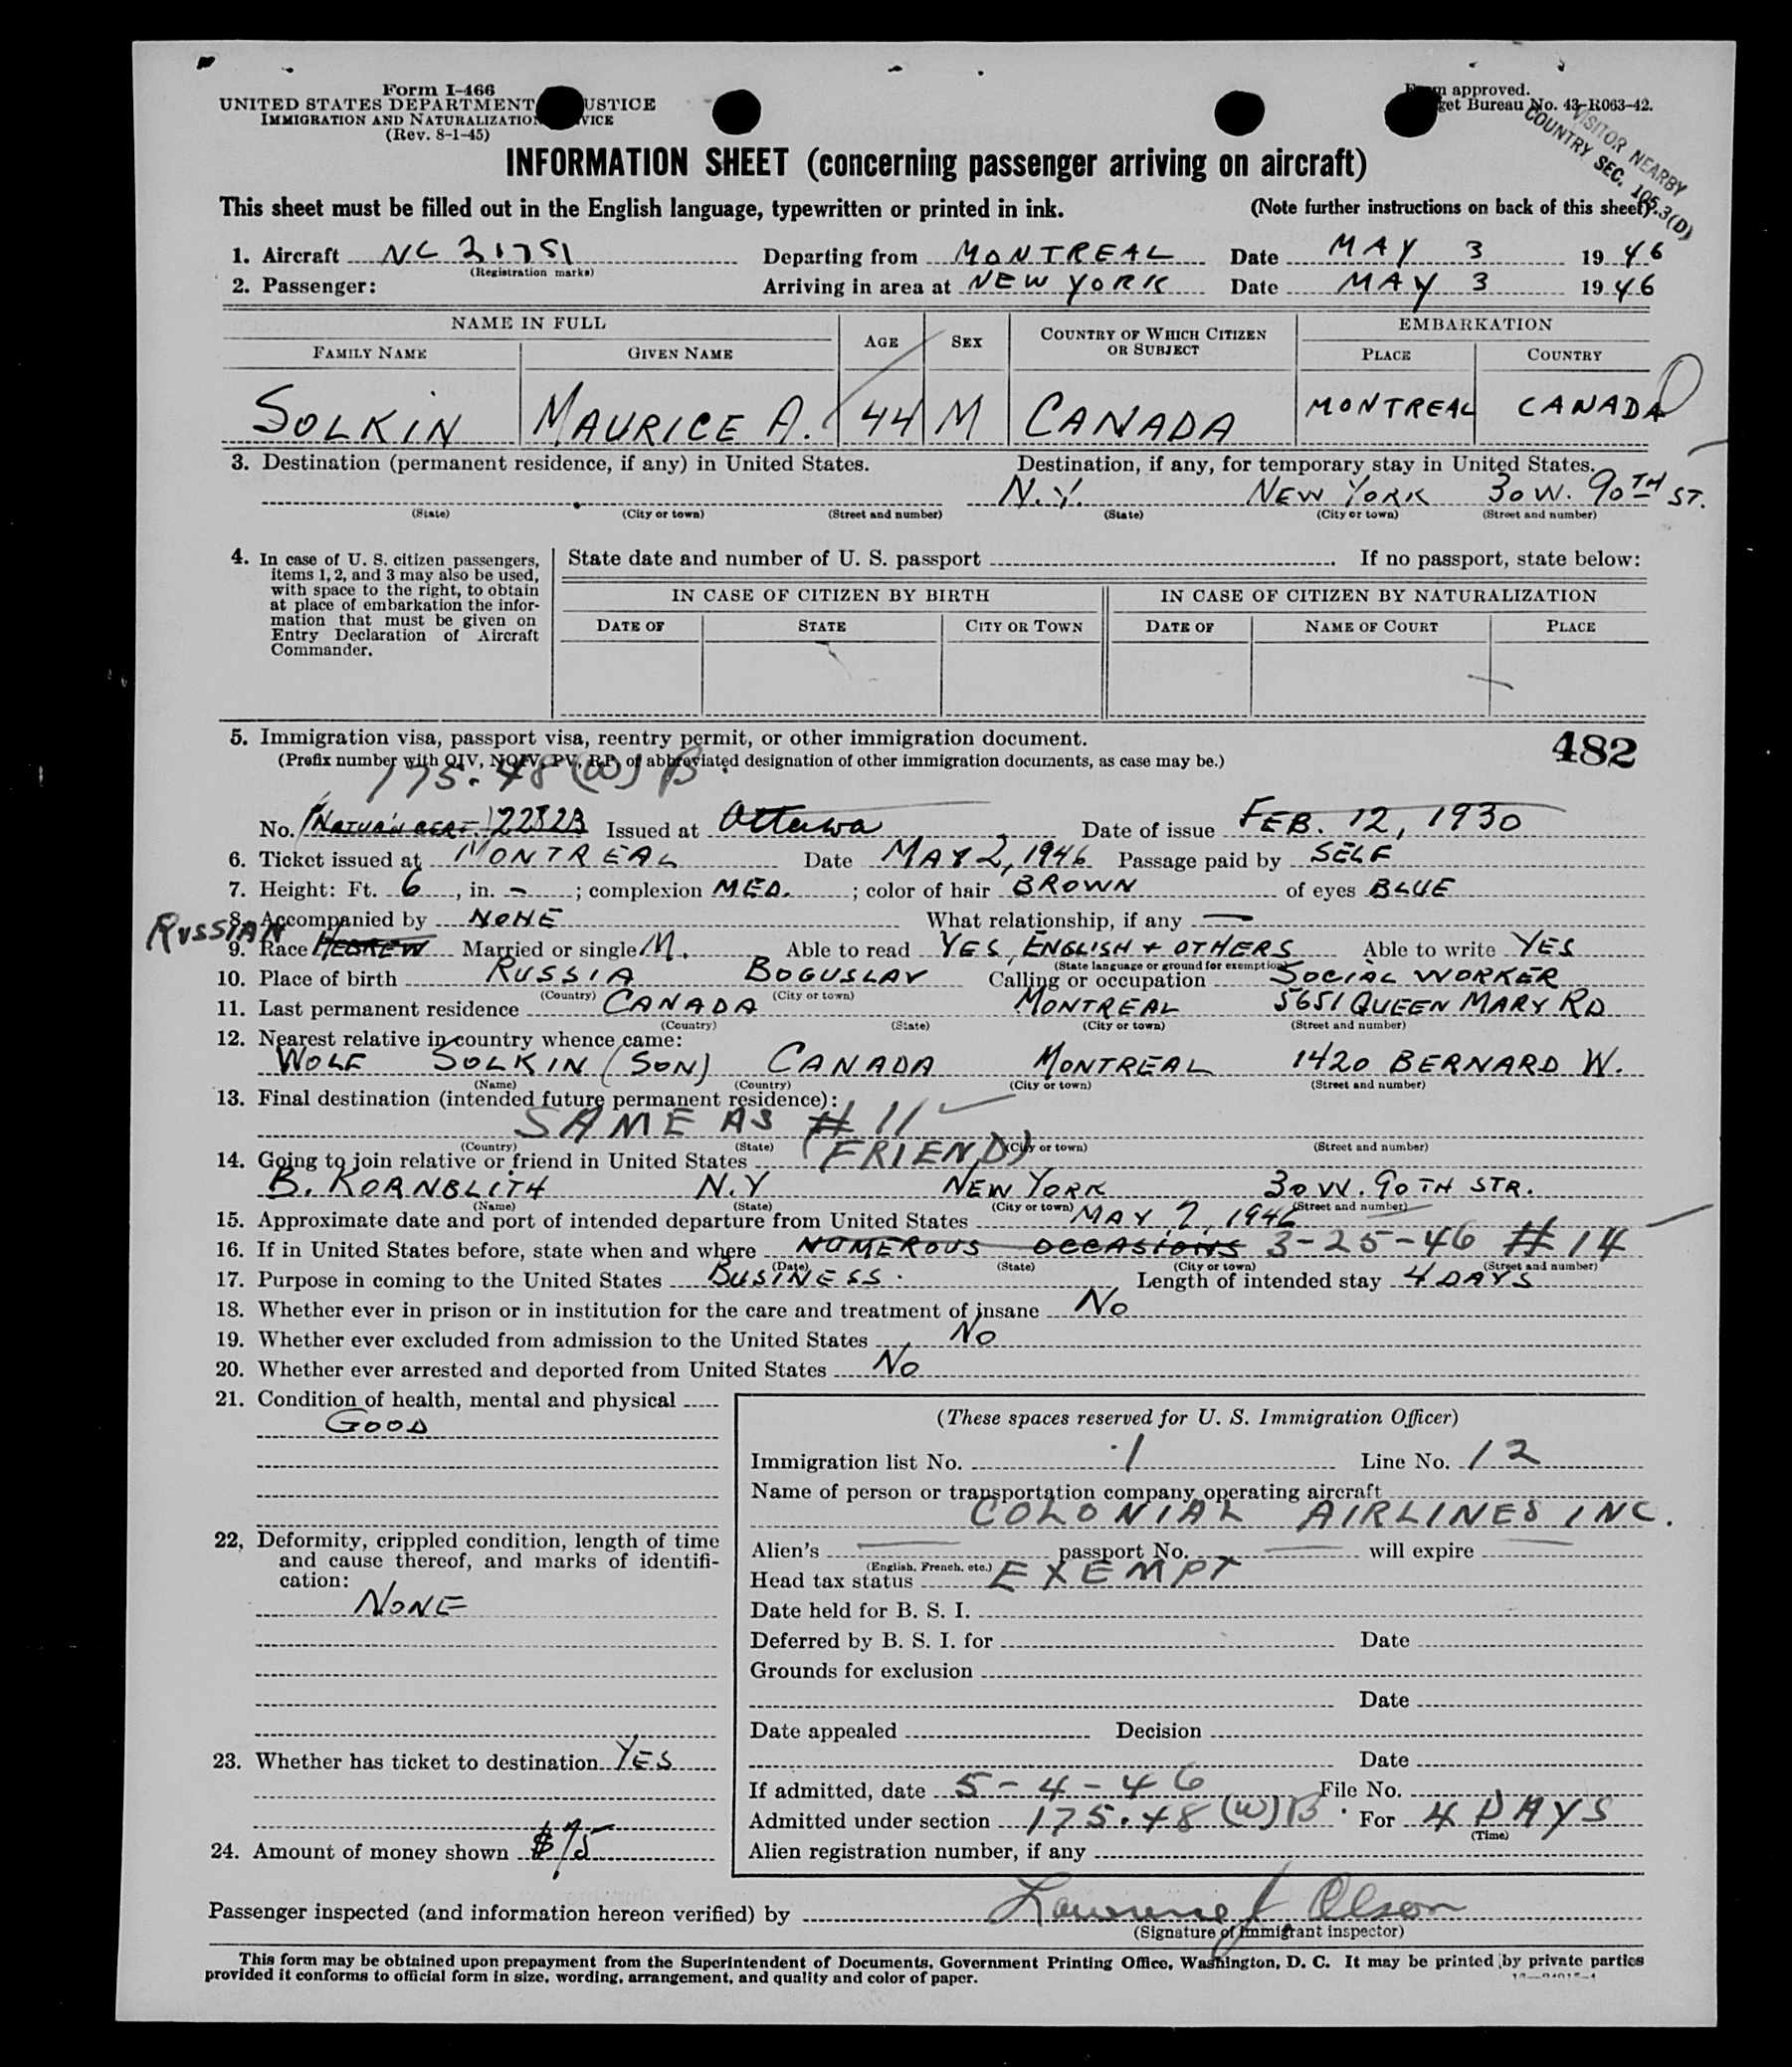 Form I-466
UNITED STATES DEPARTMENT USTICE
IMMIGRATION AND NATURALIZATION VICE
(Rev. 8-1-45)
approved.
get Bureau No. 43-R063-42.
VISITOR NEARBY
COUNTRY SEC. 105.3(D)
INFORMATION SHEET (concerning passenger arriving on aircraft)
This sheet must be filled out in the English language, typewritten or printed in ink. (Note further instructions on back of this sheet)
1. Aircraft NC 21751 Departing from MONTREAL Date MAY 3 1946
(Registration marks)
2. Passenger: Arriving in area at NEW YORK Date MAY 3 1946
NAME IN FULL AGE SEX COUNTRY OF WHICH CITIZEN OR SUBJECT EMBARKATION
FAMILY NAME GIVEN NAME PLACE COUNTRY
SOLKIN MAURICE A. 44 M CANADA MONTREAL CANADA
3. Destination (permanent residence, if any) in United States. Destination, if any, for temporary stay in United States.
N.Y. NEW YORK 30 W. 90TH ST.
(State) (City or town) (Street and number) (State) (City or town) (Street and number)
4. In case of U. S. citizen passengers,
items 1, 2, and 3 may also be used,
with space to the right, to obtain
at place of embarkation the infor-
mation that must be given on
Entry Declaration of Aircraft
Commander.
State date and number of U. S. passport . If no passport, state below:
IN CASE OF CITIZEN BY BIRTH IN CASE OF CITIZEN BY NATURALIZATION
DATE OF STATE CITY OR TOWN DATE OF NAME OF COURT PLACE
5. Immigration visa, passport visa, reentry permit, or other immigration document. 482
(Prefix number with QIV, NQIV, PV, RP, of abbreviated designation of other immigration documents, as case may be.)
175.48 (W) B
No. (NATUR'N CERT.) 22823 Issued at Ottawa Date of issue FEB. 12, 1930
6. Ticket issued at MONTREAL Date MAY 2, 1946 Passage paid by SELF
7. Height: Ft. 6, in. -; complexion MED.; color of hair BROWN of eyes BLUE
8. Accompanied by NONE What relationship, if any —
RUSSIAN
9. Race HEBREW Married or single M. Able to read YES, ENGLISH + OTHERS Able to write YES
(State language or ground for exemption)
10. Place of birth RUSSIA BOGUSLAV Calling or occupation SOCIAL WORKER
(Country) (City or town)
11. Last permanent residence CANADA MONTREAL 5651 QUEEN MARY RD
(Country) (State) (City or town) (Street and number)
12. Nearest relative in country whence came:
WOLF SOLKIN (SON) CANADA MONTREAL 1420 BERNARD W.
(Name) (Country) (City or town) (Street and number)
13. Final destination (intended future permanent residence):
SAME AS # 11
(Country) (State) (City or town) (Street and number)
14. Going to join relative or friend in United States (FRIEND)
B. KORNBLITH N.Y NEW YORK 30 W. 90TH STR.
(Name) (State) (City or town) (Street and number)
15. Approximate date and port of intended departure from United States MAY 7, 1946
16. If in United States before, state when and where NUMEROUS OCCASIONS 3-25-46 # 14
(Date) (State) (City or town) (Street and number)
17. Purpose in coming to the United States BUSINESS. Length of intended stay 4 DAYS
18. Whether ever in prison or in institution for the care and treatment of insane NO
19. Whether ever excluded from admission to the United States NO
20. Whether ever arrested and deported from United States NO
21. Condition of health, mental and physical
GOOD
22, Deformity, crippled condition, length of time
and cause thereof, and marks of identifi-
cation:
NONE
23. Whether has ticket to destination YES
24. Amount of money shown $75
(These spaces reserved for U. S. Immigration Officer)
Immigration list No. 1 Line No. 12
Name of person or transportation company operating aircraft
COLONIAL AIRLINES INC.
Alien's — passport No. — will expire —
(English, French, etc.)
Head tax status EXEMPT
Date held for B. S. I.
Deferred by B. S. I. for Date
Grounds for exclusion
Date
Date appealed Decision
Date
If admitted, date 5-4-46 File No.
Admitted under section 175.48 (W) B For 4 DAYS
(Time)
Alien registration number, if any
Passenger inspected (and information hereon verified) by Lawrence J. Olson
(Signature of immigrant inspector)
This form may be obtained upon prepayment from the Superintendent of Documents, Government Printing Office, Washington, D. C. It may be printed by private parties
provided it conforms to official form in size, wording, arrangement, and quality and color of paper.